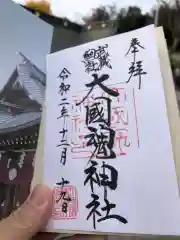 奉拝
武蔵
総社
大國魂神社
令和二年十二月
十九日